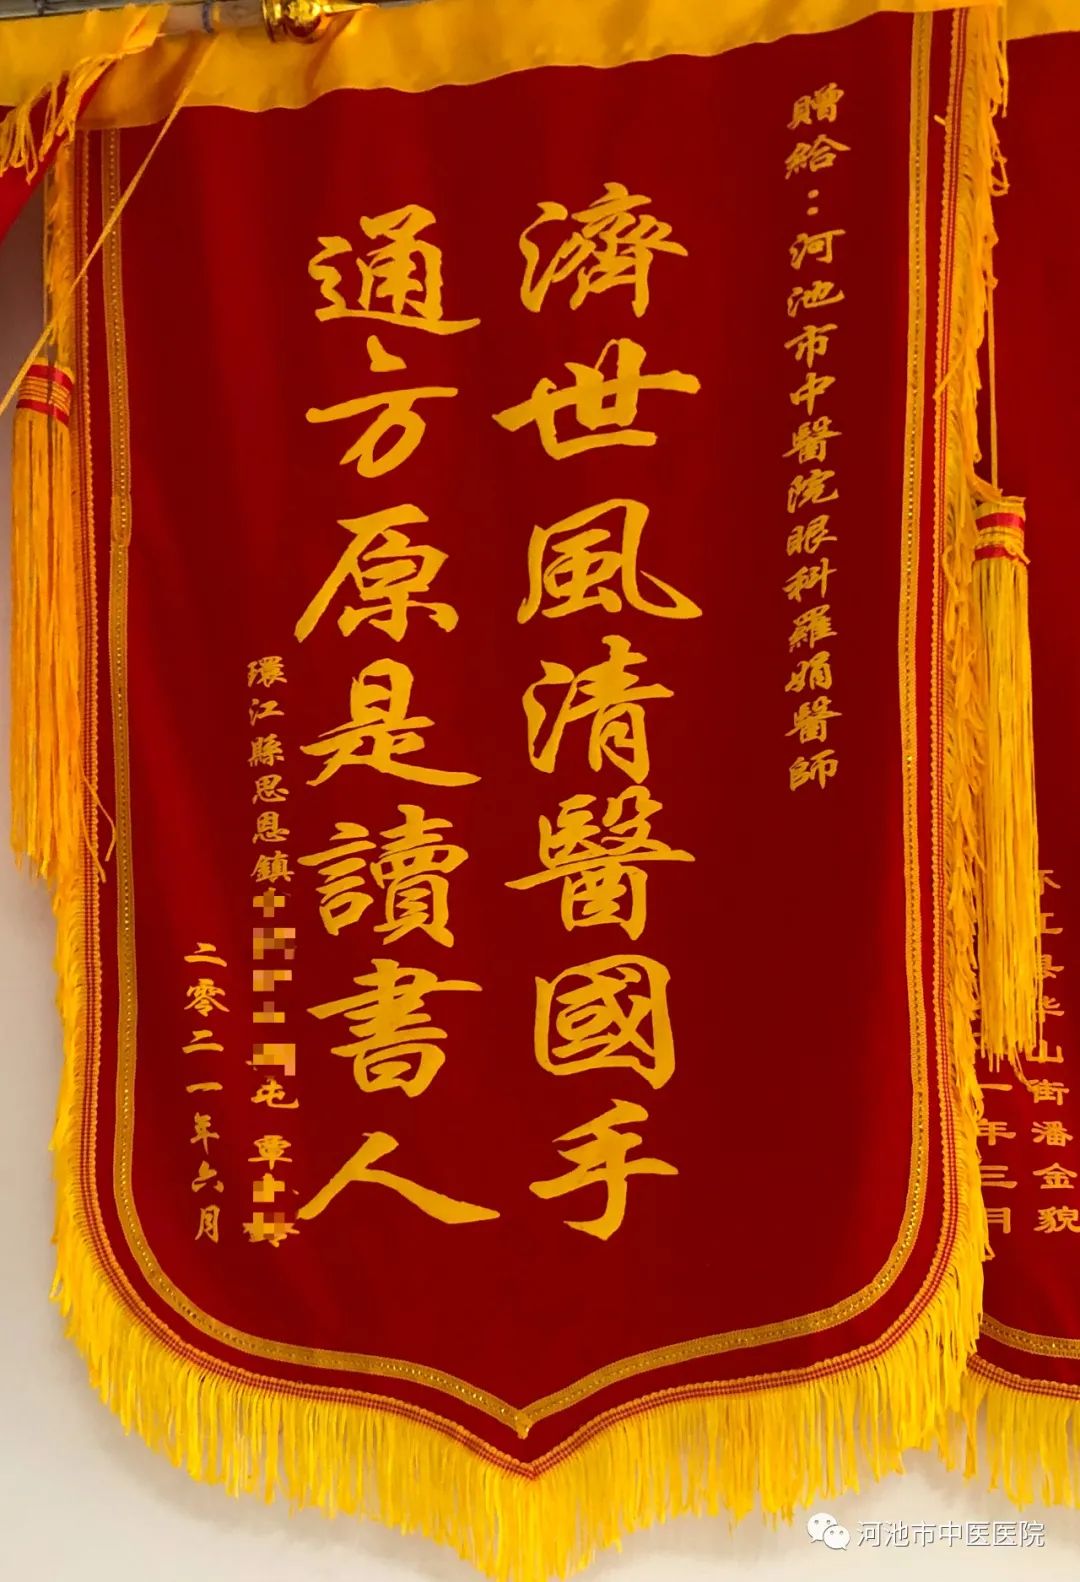 贈給：河池市中醫院眼科羅娟醫師
濟世風清醫國手
通方原是讀書人
環江縣思恩鎮
屯 覃
二零二一年六月
环江县华山街潘金貌
一年三月
河池市中医医院